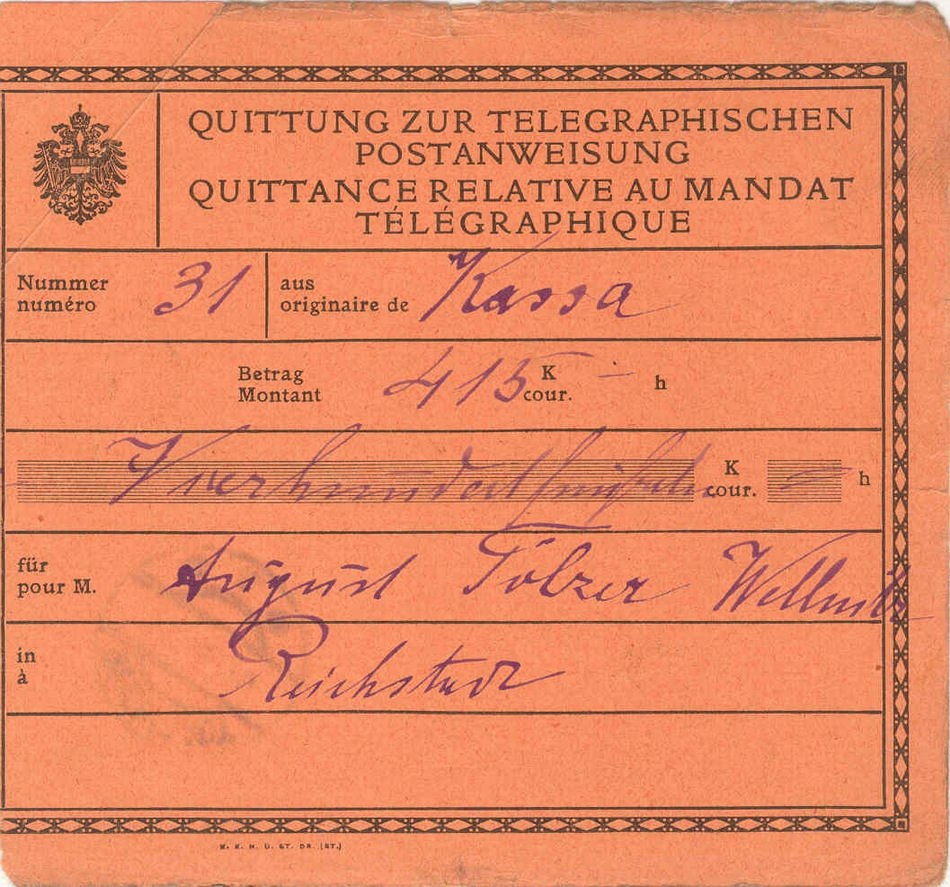 QUITTUNG ZUR TELEGRAPHISCHEN
POSTANWEISUNG
QUITTANCE RELATIVE AU MANDAT
TÉLÉGRAPHIQUE
Nummer
numéro 31 aus
originaire de Kassa
Betrag
Montant 415 K
cour. — h
Vierhundertfünfzehn K
cour. — h
für
pour M. August Tölzer Wellnitz
in
à Reichstadt
K. K. H. U. ST. DR. (ST.)